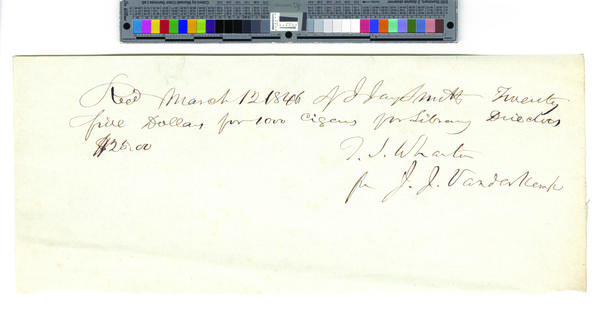 Recd March 12 1846 of J Jay Smith Twenty
five Dollars for 1000 Cigars for Library Directors
$25.00
T. I. Wharton
for J. J. Vanderkemp